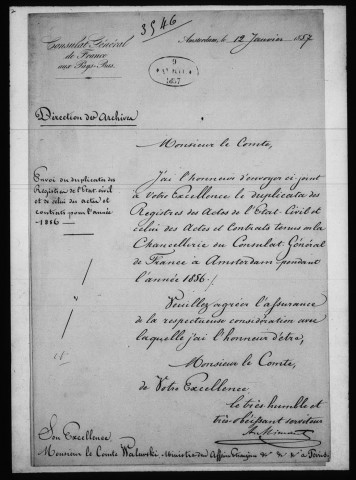 3546
Consulat Général
de France
aux Pays-Bas.
Amsterdam, le 12 Janvier 1857
1857
Direction des Archives
Monsieur le Comte,
Envoi du duplicata des
Registres de l'Etat civil
et de celui des actes et
contrats pour l'année
1856
J'ai l'honneur d'envoyer ci joint
à Votre Excellence le duplicata des
Registres des Actes de l'Etat-Civil et
celui des Actes et Contrats tenus en la
Chancellerie du Consulat Général
de France à Amsterdam pendant
l'année 1856.
Veuillez agréer l'assurance
de la respectueuse considération avec
laquelle j'ai l'honneur d'être,
Monsieur le Comte,
de Votre Excellence
le très humble et
très obéissant serviteur
Son Excellence
Monsieur le Comte Walewski Ministre des Affaires Etrangères & & & à Paris